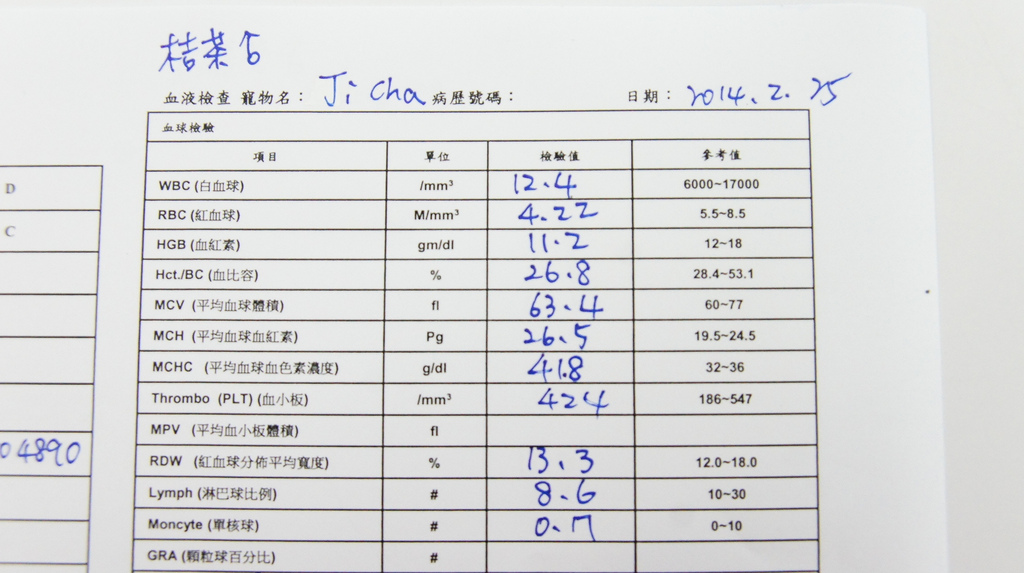 桔茶ㄘ
血液檢查 寵物名： Ji Cha 病歷號碼： 日期： 2014.2.25
血球檢驗
項目 單位 檢驗值 參考值
WBC (白血球) /mm³ 12.4 6000~17000
RBC (紅血球) M/mm³ 4.22 5.5~8.5
HGB (血紅素) gm/dl 11.2 12~18
Hct./BC (血比容) % 26.8 28.4~53.1
MCV (平均血球體積) fl 63.4 60~77
MCH (平均血球血紅素) Pg 26.5 19.5~24.5
MCHC (平均血球血色素濃度) g/dl 41.8 32~36
Thrombo (PLT) (血小板) /mm³ 424 186~547
MPV (平均血小板體積) fl
RDW (紅血球分佈平均寬度) % 13.3 12.0~18.0
Lymph (淋巴球比例) # 8.6 10~30
Moncyte (單核球) # 0.7 0~10
GRA (顆粒球百分比) #
D
C
04890